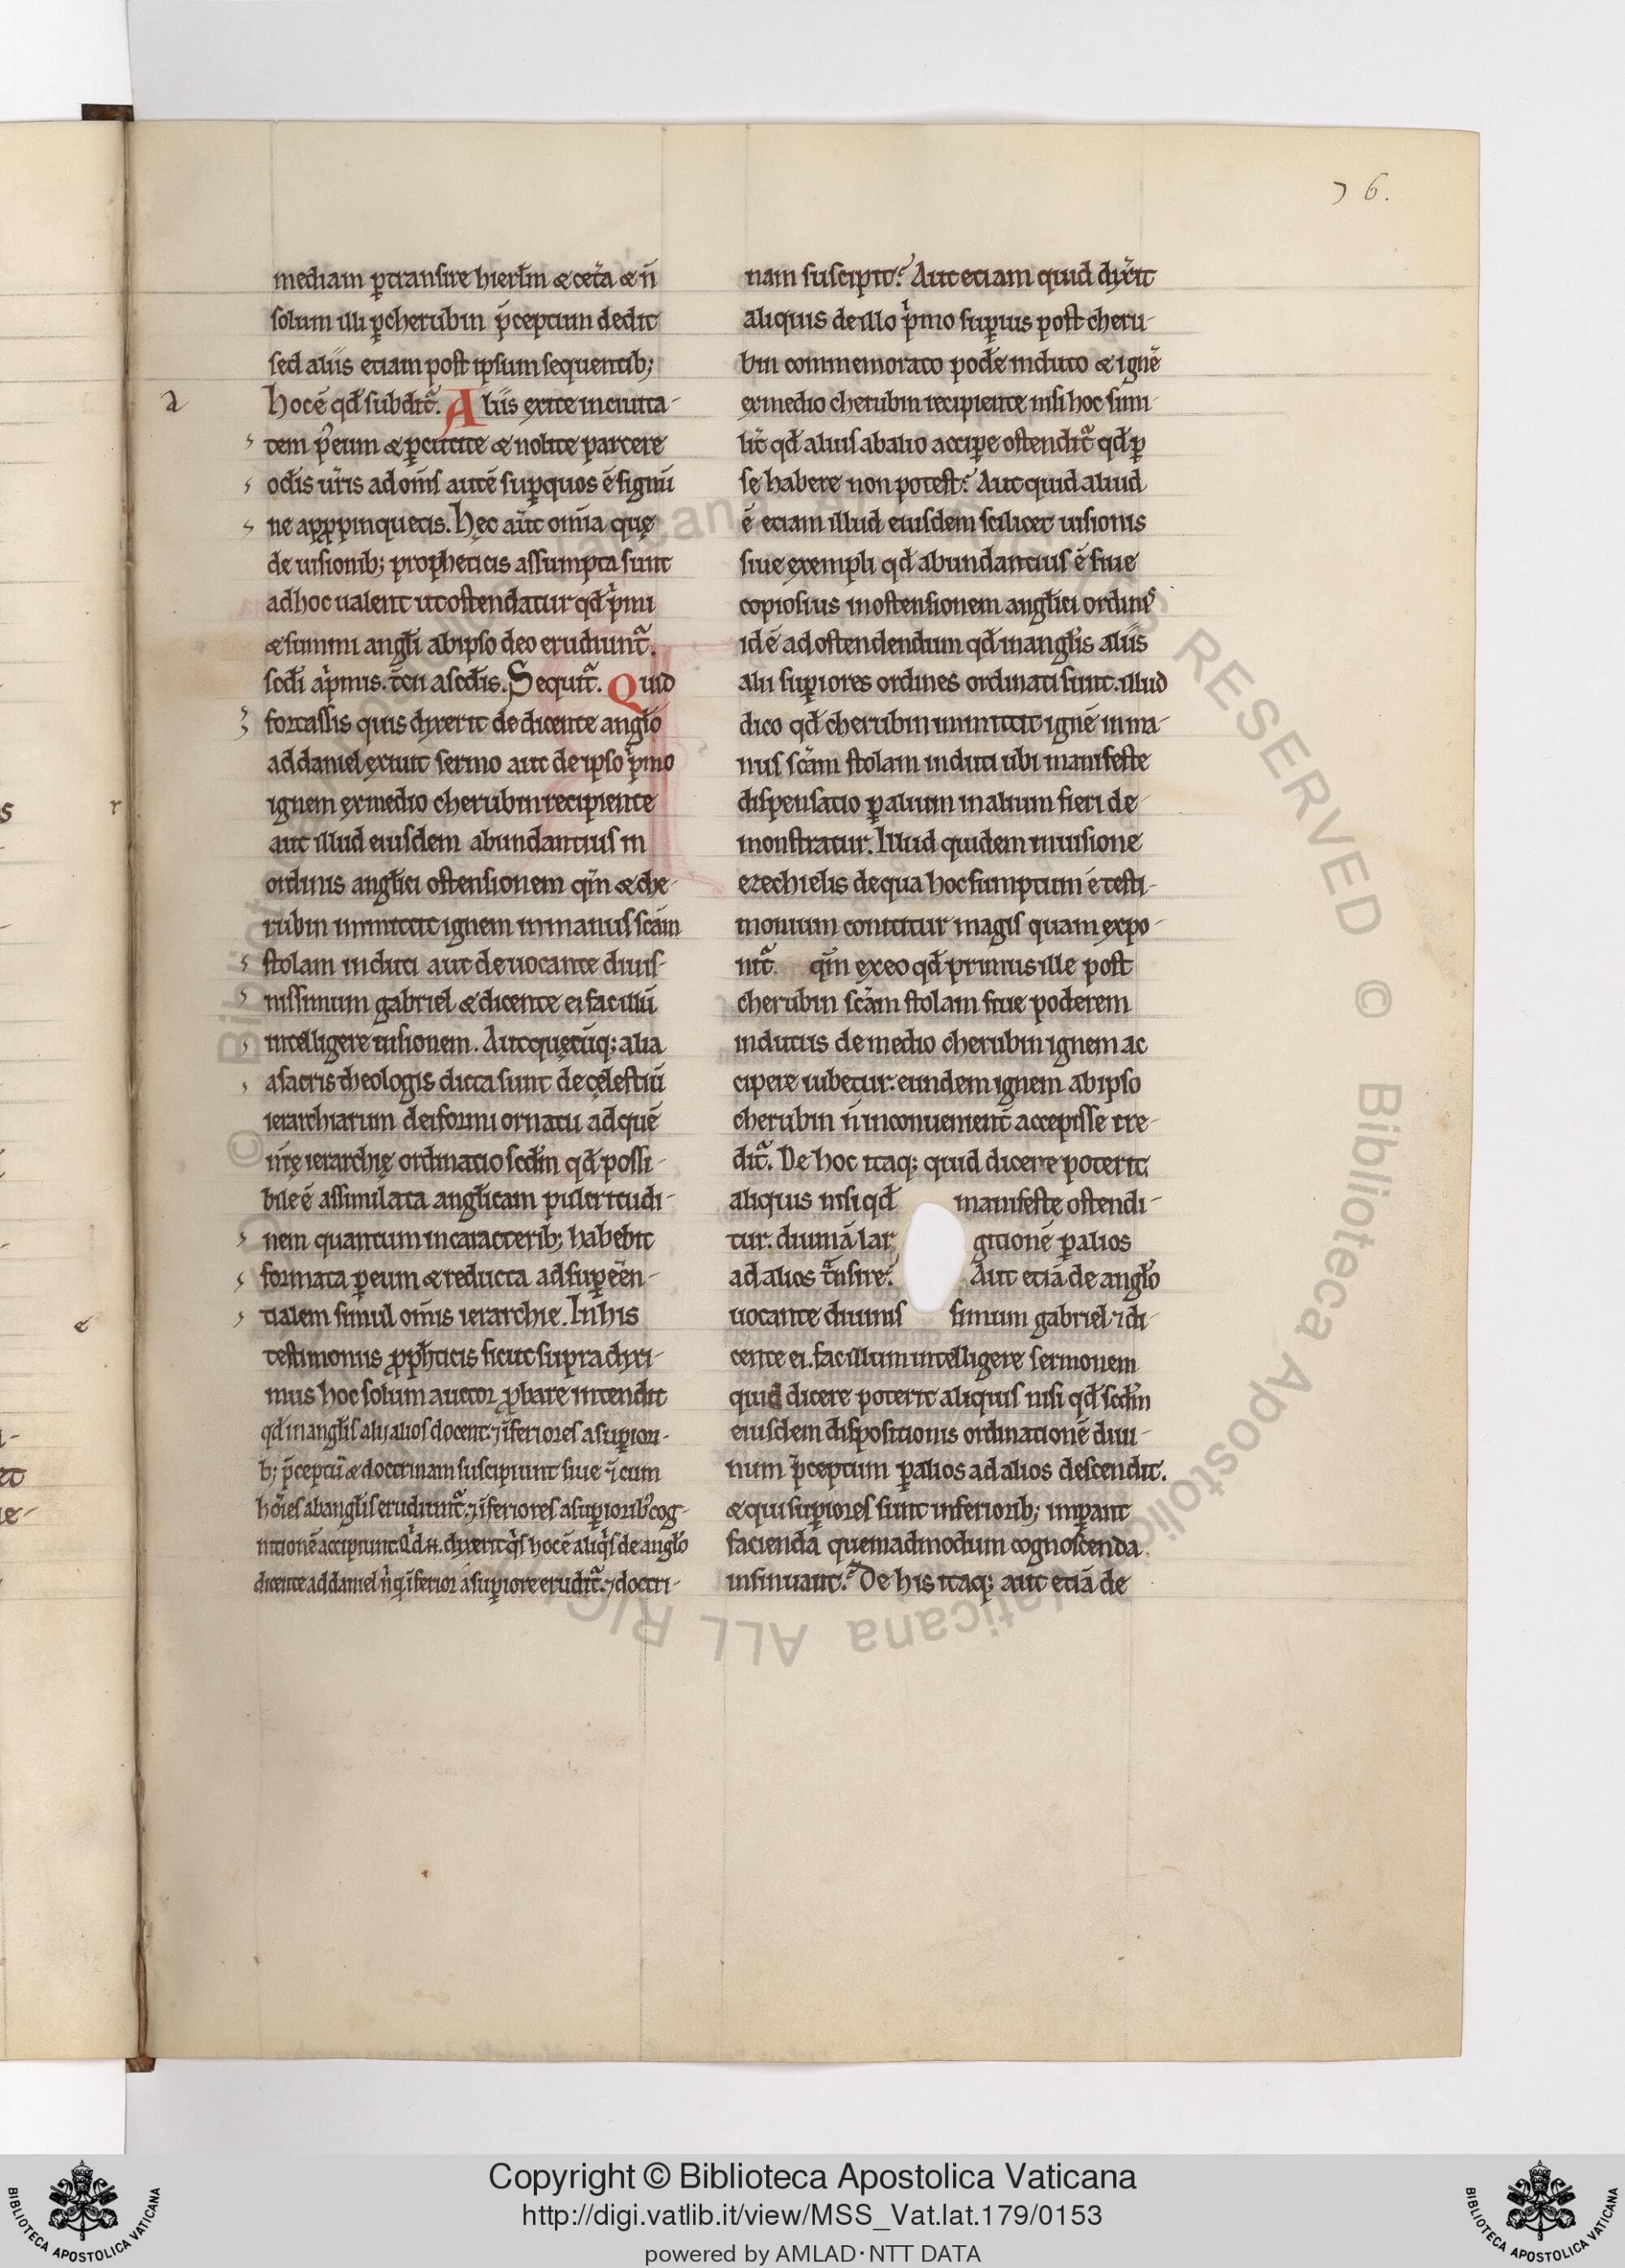 76.
mediam ꝑtransire hierl̅m & cet̉a & n̅
solum illi ꝑ cherubin p̅ceptum dedit
sed aliis etiam post ipsum sequentib;
a
hoc ē qđ subdit᷑. Aliis exite in ciuita-
tem p̉ eum & ꝑcutite & nolite parcere
ocłis ur̅is ad om̅s autē suꝑ quos ē signū
ne apꝓpinquetis. hęc aūt om̅ia quę
de uisionib; propheticis assumpta sunt
ad hoc ualent ut ostendatur qđ p̉mi
& summi angłi ab ipso deo erudiunt᷑.
scđi a p̉mis. t̅cii a scđis. Sequit᷑. Quid
fortassis quis dixerit de dicente angło
ad daniel exiuit sermo aut de ipso p̉mo
ignem ex medio cherubin recipiente
r
aut illud eiusdem abundantius in
ordinis angłici ostensionem qm̅ & che-
rubin inmittit ignem in manus scām
stolam induti aut de uocante diuis-
nissimum gabriel & dicente ei fac illū
intelligere uisionem. Aut quęcūq; alia
a sacris theologis dicta sunt de cęlestiū
ierarchiarum deiformi ornatu ad quē
nr̅ę ierarchię ordinatio scđm qđ possi-
bile ē assimilata angłicam pulcritudi-
nem quantum in caracterib; habebit
formata ꝑ eum & reducta ad suꝑeēn-
tialem simul om̅is ierarchie. In his
e
testimoniis ꝓph̅ticis sicut supra dixi-
mus hoc solum auctor ꝓbare intendit
qđ in angłis alij alios docent. ⁊ īferiores a suꝑiori-
b; p̅ceptū & doctrinam suscipiunt siue ⁊ cum
hoīes ab angłis erudiunt᷑. ⁊ īferiores a suꝑioribꝰ cog-
nitionē accipiunt. Qͥd .n. dixerit qͥs hoc ē aliqͥs de angło
dicente ad daniel nͥ qđ īferior a suꝑiore erudit᷑. ⁊ doctri-
nam suscipit? Aut etiam quid dix̉it
aliquis de illo p̉mo suꝑius post cheru-
bin commemorato podēre induto & ignē
ex medio cherubin recipiente nisi hoc simi-
lit̅ qđ alius ab alio accipe ostendit᷑ qđ ꝑ
se habere non potest? Aut quid aliud
ē etiam illud eiusdem scilicet uisionis
siue exempli qđ abundantius ē siue
copiosius in ostensionem angłici ordinis
id ē ad ostendendum qđ in angłis aliis
alii suꝑiores ordines ordinati sunt. illud
dico qđ cherubin inmittit ignē in ma-
nus scām stolam induti ubi manifeste
dispensatio ꝑ alium in alium fieri de-
monstratur. Illud quidem in uisione
ezechielis de qua hoc sumptum ē testi-
monium conicitur magis quam expo-
nit᷑. qm̅ ex eo qđ primus ille post
cherubin scām stolam siue poderem
indutus de medio cherubin ignem ac
cipere iubetur. eundem ignem ab ipso
cherubin n̅ inconuenient̅ accepisse cre-
dit᷑. De hoc itaq; quid dicere poterit
aliquis nisi qđ manifeste ostendi-
tur. diuinā lar gitionē ꝑ alios
ad alios t᷑nsire? Aut etiā de angło
uocante diuinis simum gabriel ⁊ di-
cente ei. fac illum intelligere sermonem
quid dicere poterit aliquis nisi qđ scđm
eiusdem dispositionis ordinationē diui-
num p̅ceptum ꝑ alios ad alios descendit.
& qui suꝑiores sunt inferiorib; imꝑant
facienda quemadmodum cognoscenda
insinuant? De his itaq; aut etiā de
Copyright © Biblioteca Apostolica Vaticana
http://digi.vatlib.it/view/MSS_Vat.lat.179/0153
powered by AMLAD・NTT DATA
BIBLIOTECA APOSTOLICA VATICANA
BIBLIOTECA APOSTOLICA VATICANA